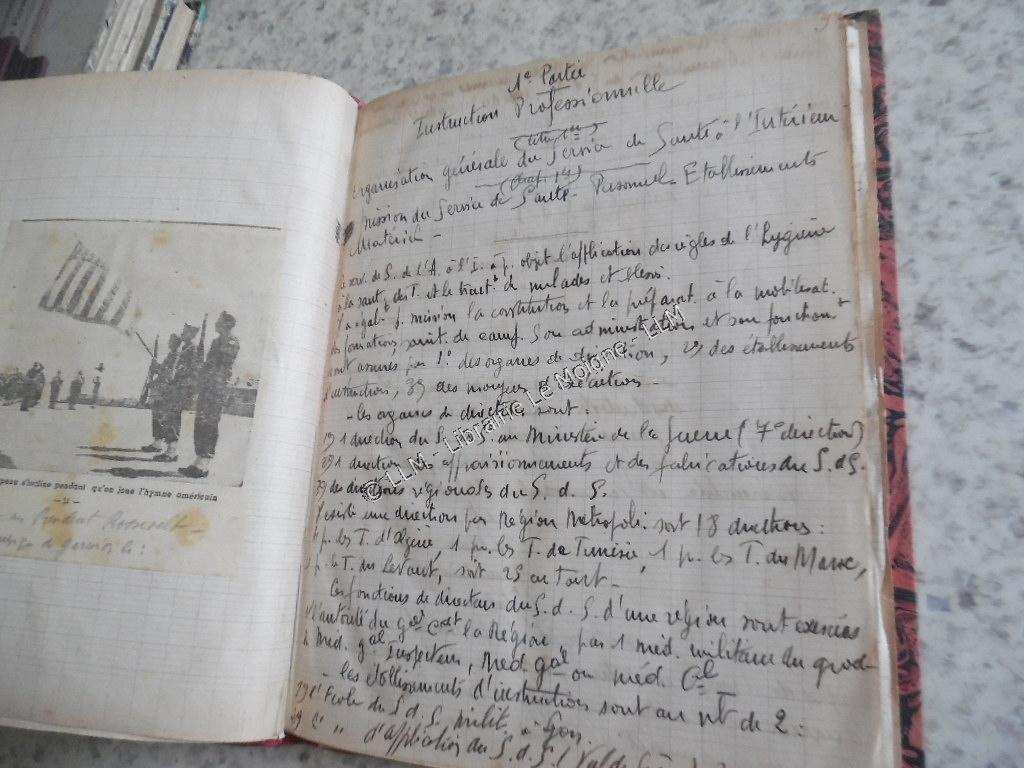 peau s'incline pendant qu'on joue l'hymne américain
— 11 —
Président Roosevelt
1e Partie
Instruction Professionnelle
(titre 1er)
Organisation générale du Service de Santé à l'Intérieur
(chap. 14)
Mission du Service de Santé - Personnel Etablissements
Matériel -
serv. de S. de l'A. à l'I. a p. objet l'application des règles de l'hygiène
à la santé des T. et le trait. de malades et bless.
a égalt p. mission la constitution et la préparat. à la mobilisat.
formations sanit. de camp. Son administration et son fonctiont
sont assurés par 1° des organes de direction, 2°) des établissements
d'instructions, 3°) des moyens d'exécution -
- les organes de direction sont :
1°) 1 direction du S. S. au Ministère de la Guerre (7e direction)
2°) 1 direction des approvisionnements et des fabrications du S. d. S.
3°) des directions régionales du S. d. S.
existe une direction par Région Métropoli. soit 18 directions :
1 p. les T. d'Algérie, 1 pr. les T. de Tunisie, 1 p. les T. du Maroc,
1 p. le T. du Levant, soit 25 au tout -
Les fonctions de directeur du S. d. S. d'une région sont exercées
l'autorité du gal Cdt la Région, par 1 méd. militaire du grade
de Méd. gal inspecteur, Méd gal ou méd. Cel
les établissements d'instructions sont au nt de 2 :
1°) l'Ecole du S. d. S. milit. à Lyon.
2°) l' " d'application du S. d. S. (Val de
© LLM - Librairie Le Moine - LLM